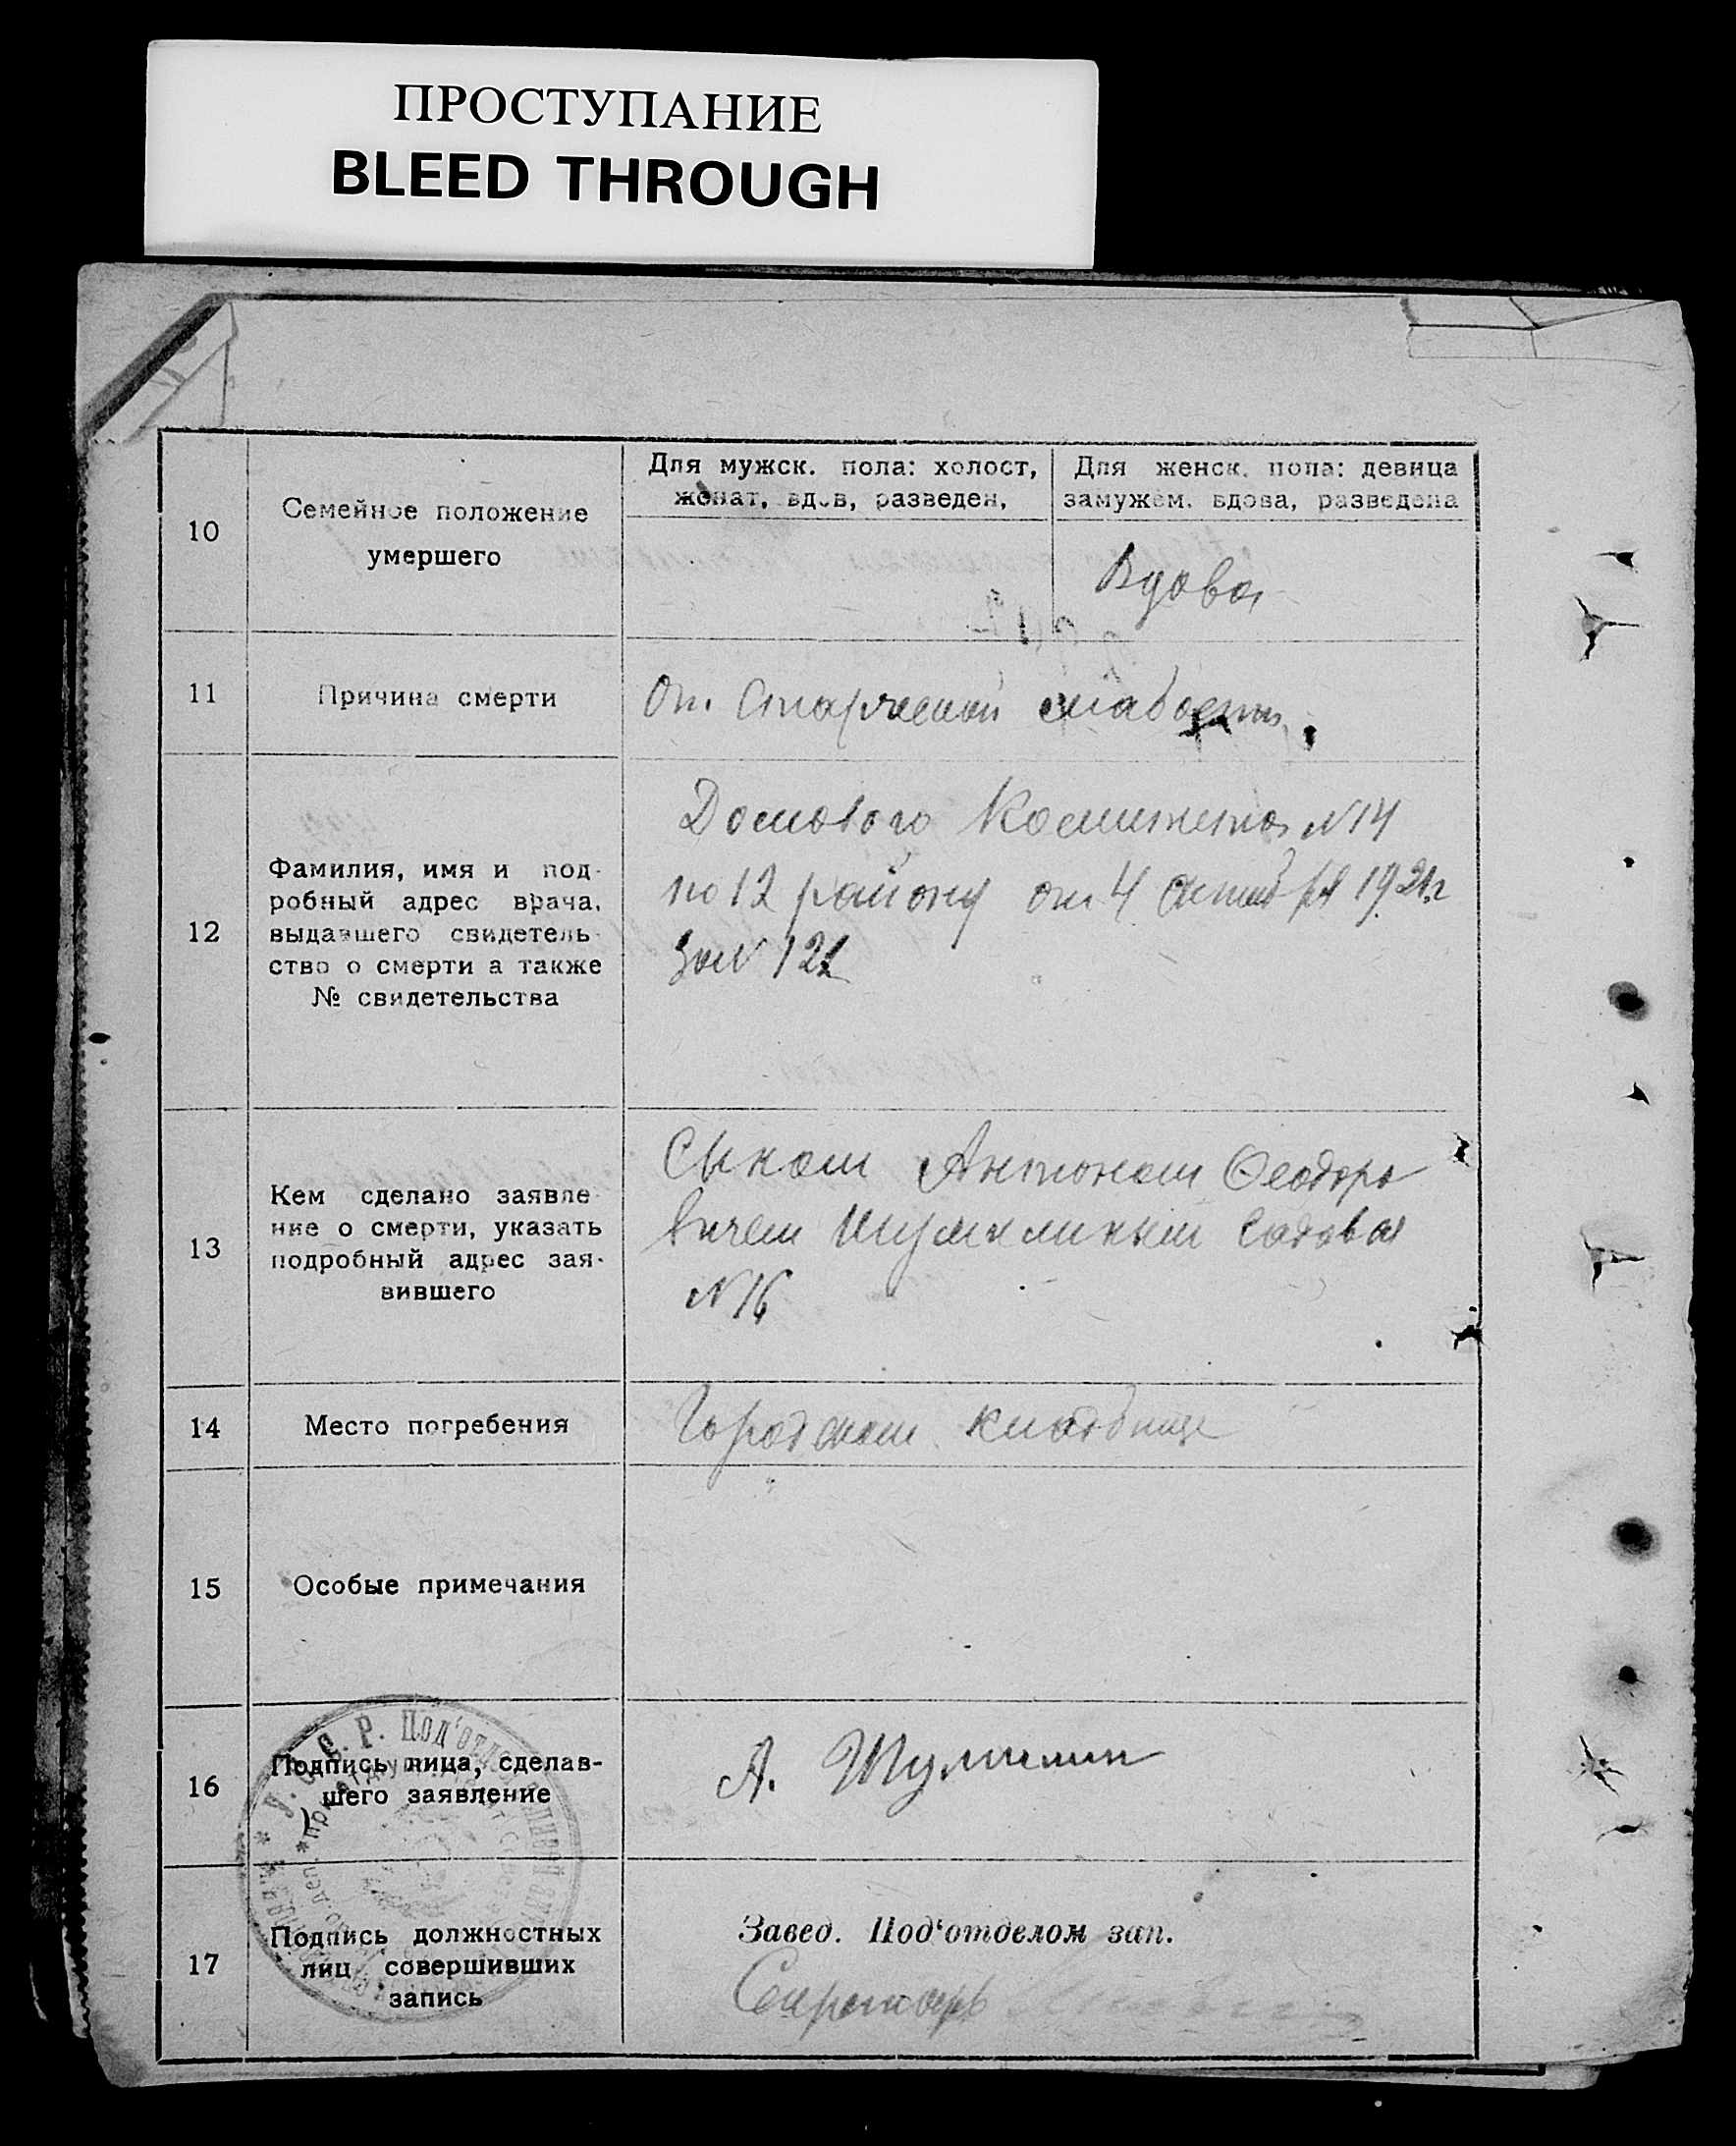 ПРОСТУПАНИЕ
BLEED THROUGH
10
Семейное положение
умершего
Для мужск. пола: холост,
женат, вдов, разведен,
Для женск. пола: девица
замужем. вдова, разведена
Вдова
11
Причина смерти
От старческой слабости
12
Фамилия, имя и под-
робный адрес врача,
выдавшего свидетель-
ство о смерти а также
№ свидетельства
Домового Комитета N 14
по 12 району от 4 октября 1921 г
За N 121
13
Кем сделано заявле
ние о смерти, указать
подробный адрес зая-
вившего
Сыном Антоном Феодоро
вичем Шумилиным Садовая
N 16
14
Место погребения
Городском кладбище
15
Особые примечания
16
Подпись лица, сделав-
шего заявление
А. Шумилин
17
Подпись должностных
лиц совершивших
запись
Завед. Под‘отделом зап.
Секретарь
У. С. С. Р. Под‘отдел